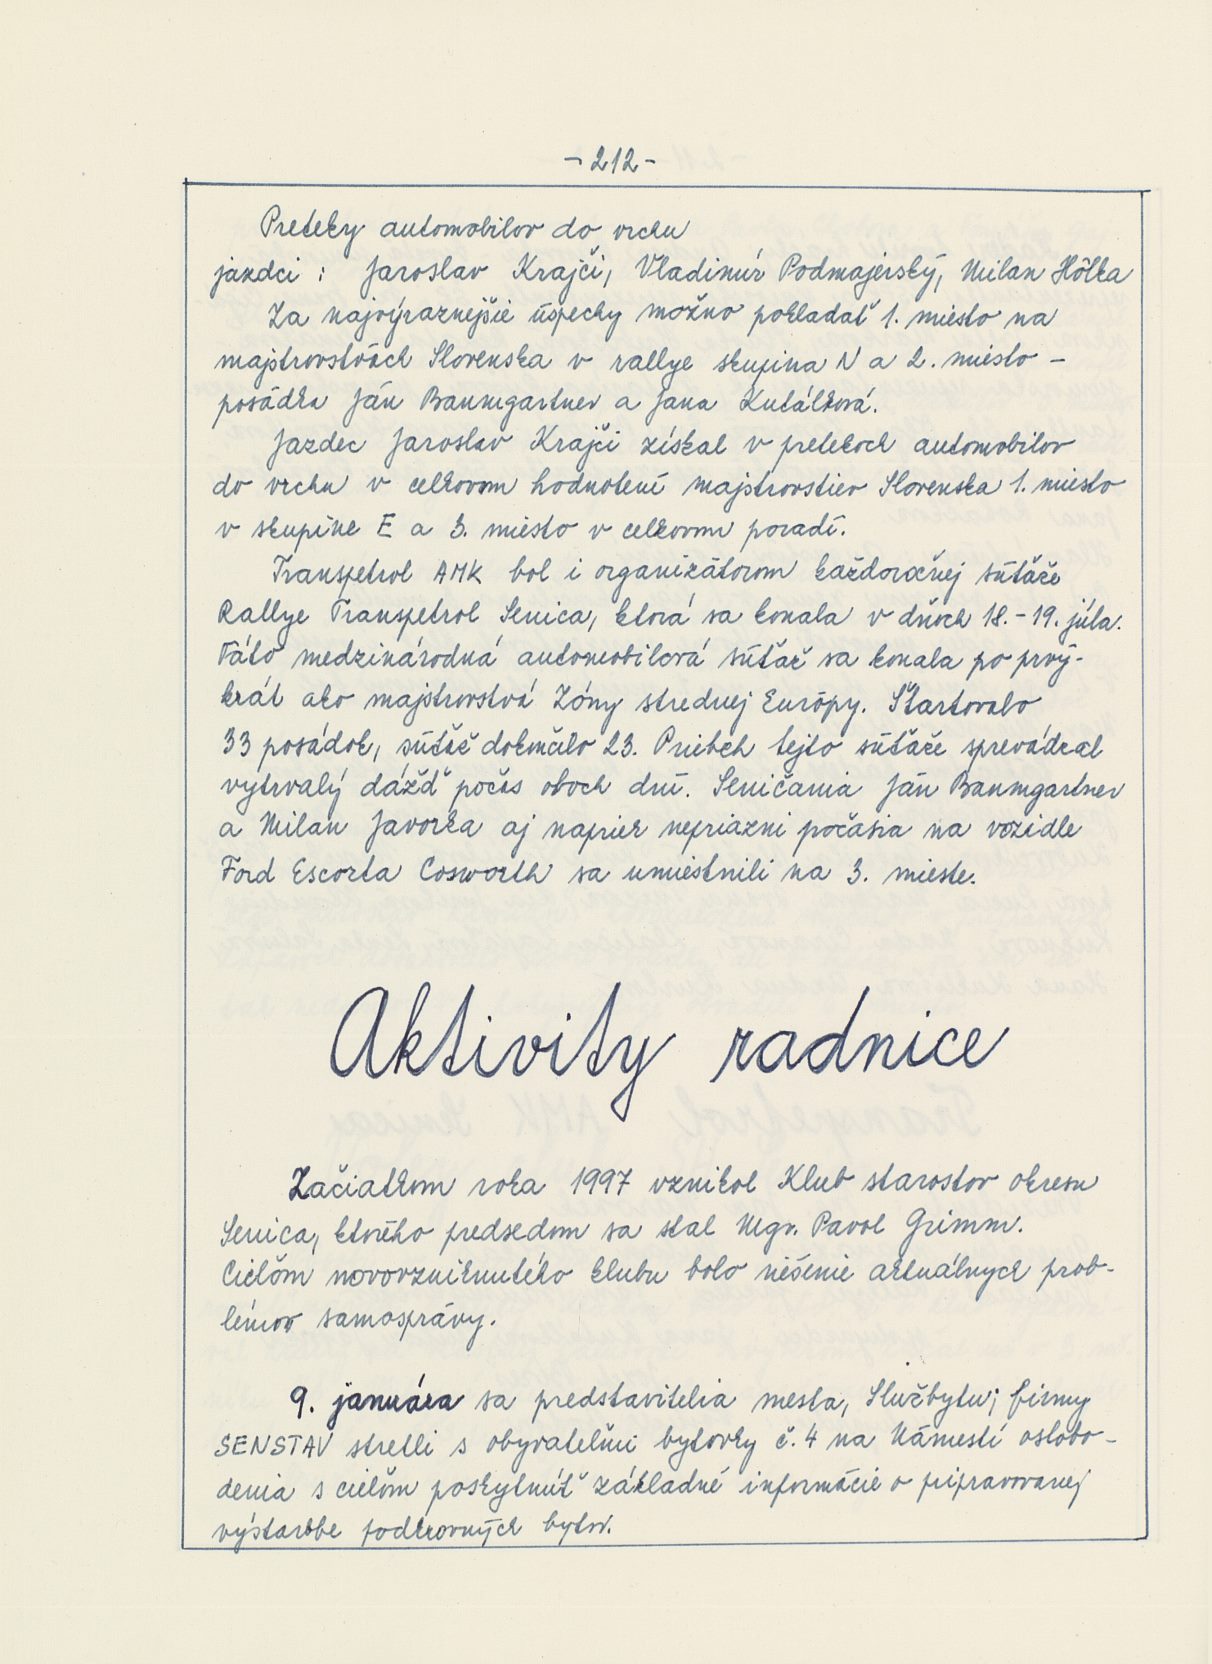 - 212 -
Preteky automobilov do vrchu
jazdci : Jaroslav Krajči, Vladimír Podmajerský, Milan Hôlka
Za najvýraznejšie úspechy možno pokladať 1. miesto na
majstrovstvách Slovenska v rallye skupina N a 2. miesto -
posádka Ján Baumgartner a Jana Kutálková.
Jazdec Jaroslav Krajči získal v pretekoch automobilov
do vrchu v celkovom hodnotení majstrovstiev Slovenska 1. miesto
v skupine E a 3. miesto v celkovom poradí.
Transpetrol AMK bol i organizátorom každoročnej súťaže
Rallye Transpetrol Senica, ktorá sa konala v dňoch 18. - 19. júla.
Táto medzinárodná automobilová súťaž sa konala po prvý-
krát ako majstrovstvá Zóny strednej Európy. Štartovalo
33 posádok, súťaž dokončilo 23. Priebeh tejto súťaže sprevádzal
vytrvalý dážď počas oboch dní. Seničania Ján Baumgartner
a Milan Javorka aj napriek nepriazni počasia na vozidle
Ford Escorta Cosworth sa umiestnili na 3. mieste.
Aktivity radnice
Začiatkom roka 1997 vznikol Klub starostov okresu
Senica, ktorého predsedom sa stal Mgr. Pavol Grimm.
Cieľom novovzniknutého klubu bolo riešenie aktuálnych prob-
lémov samosprávy.
9. januára sa predstavitelia mesta, Službytu, firmy
SENSTAV stretli s obyvateľmi bytovky č. 4 na Námestí oslobo-
denia s cieľom poskytnúť základné informácie o pripravovanej
výstavbe podkrovných bytov.